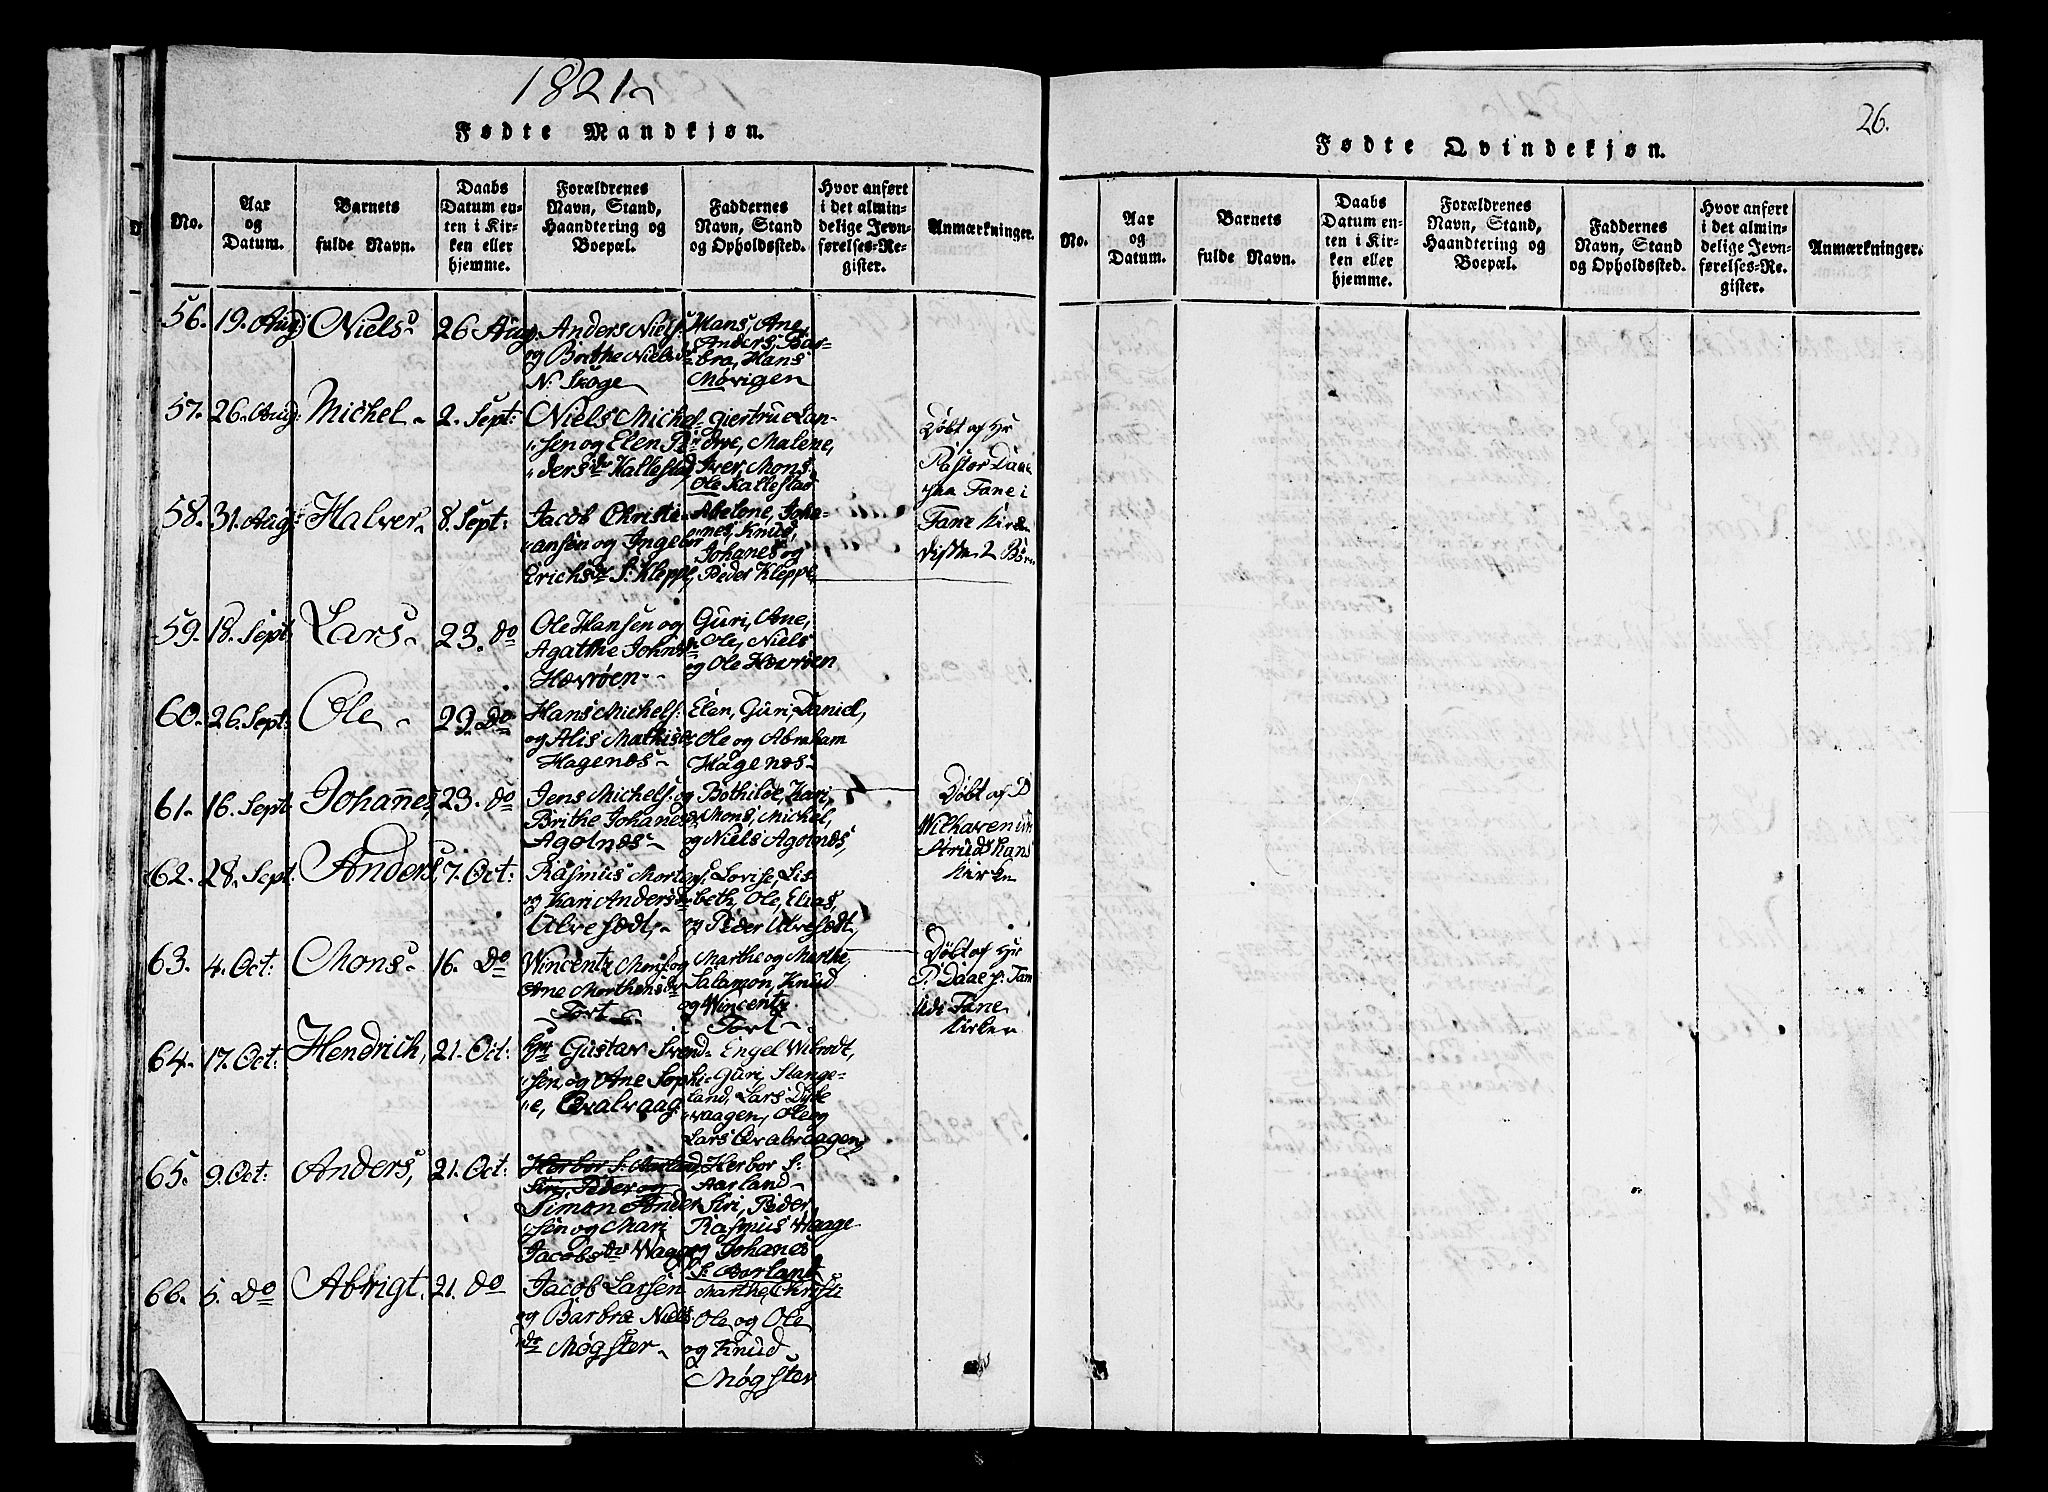 1821
Fødte Mandkjøn.
No.
Aar
og
Datum.
Barnets
fulde Navn.
Daabs
Datum en-
ten i Kir-
ken eller
hjemme.
Forældrenes
Navn, Stand,
Haandtering og
Boepæl.
Faddernes
Navn, Stand
og Opholdssted.
Hvor anført
i det almin-
delige Jevn-
førelses-Re-
gister.
Anmærkninger.
56. 19. Aug: Niels 26 Aug.
Anders Niels:
og Brithe Nielsdr
N. Skoge
Hans, Ane,
Anders, Bar-
bra, Hans
Møvigen
57. 26. Aug: Michel 2. Sept:
Niels Michel
sen og Elen Pe
dersdr Kallestad
Giertrue Lan-
Ove, Malene,
Iver, Mons
Ole Kallestad
Døbt af Hr
Pastor Daae
paa Fane i
Fane Kirke
disse 2 Børn
58. 31. Aug: Halver 8. Sept:
Jacob Christi
ansen og Ingebor
Erichsdr S. Kleppe
Abelone, Joha-
nnes, Knud,
Johanes og
Peder Kleppe
59. 18. Sept: Lars 23. do
Ole Hansen og
Agatthe Johnsdr
Hævrøen
Guri, Ane,
Ole, Niels
og Ole Hævrøen
60. 26. Sept: Ole 29. do
Hans Michels:
og Alis Mathisdr
Hagenæs
Elen, Guri, Daniel,
Ole og Abraham
Hagenæs
61. 16. Sept Johannes, 23. do
Jens Michels: og
Brithe Johanesdr
Agotnæs
Bothilde, Kari,
Mons, Michel,
og Niels Agotnæs,
Døbt af P
Wilhaven
Kirken
62. 28. Sept: Anders, 7. Oct:
Rasmus Morten
og Kari Andersdr
Ulvesædt,
Lovise, Lis-
beth, Ole, Elias,
og Peder Ulvesædt,
63. 4. Oct: Mons 16. do
Wincentz Mons: og
Ane Morthensdr
Tort
Marthe og Marthe,
Salamon, Knud
og Wincentz
Tort
Døbt af Hr
P. Daae p. Fane
udi Fane
Kirken
64. 17. Oct: Hendrich, 21. Oct:
Hr Gustav Svend-
sen, og Ane Sophi
e, Qvalvaag
Engel Wibrodt,
Guri, Slange-
land, Lars Dybe
vaagen, Ole og
Lars Qvalvaagen
65. 9. Oct: Anders, 21. Oct:
Herbor S. Aarland
Siri, Peder og
Simon Ander
sen og Mari
Jacobsdr Waage
Herbor S:
Aarland
Siri, Peder,
Rasmus Waage
og Johanes
S. Aarland
66. 5. do Abrigt. 21. do
Jacob Larsen
og Barbræ Niels
dr Møgster
Marthe, Christi
Ole og Ole
og Knud
Møgster
26.
Fødte Qvindekjøn.
No.
Aar
og
Datum.
Barnets
fulde Navn.
Daabs
Datum en-
ten i Kir-
ken eller
hjemme.
Forældrenes
Navn, Stand,
Haandtering og
Boepæl.
Faddernes
Navn, Stand
og Opholdssted.
Hvor anført
i det almin-
delige Jevn-
førelses-Re-
gister.
Anmærkninger.